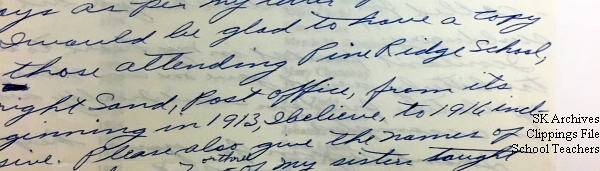 ays as per my letter of
I would be glad to have a copy
those attending Pine Ridge School,
right Sand, Post office, from its
ginning in 1913, I believe, to 1916 incl
sive. Please also give the names of
or three
of my sisters taught
SK Archives
Clippings File
School Teachers